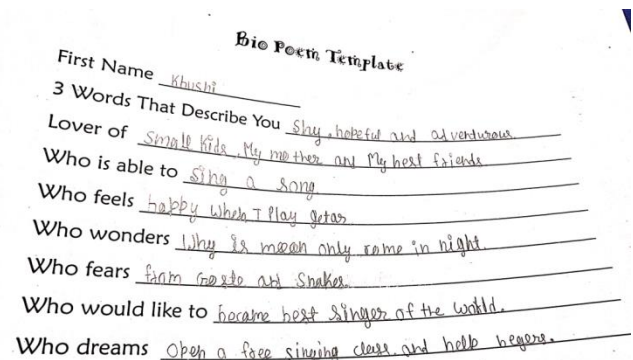 Bio Poem Template
First Name Khushi
3 Words That Describe You Shy, hopeful and adventurous.
Lover of Small kids, My mother and My best friends
Who is able to sing a song
Who feels happy when I Play getar
Who wonders Why is moon only come in night.
Who fears from and Snakes.
Who would like to became best singer of the world.
Who dreams Open a free singing class and help begers.